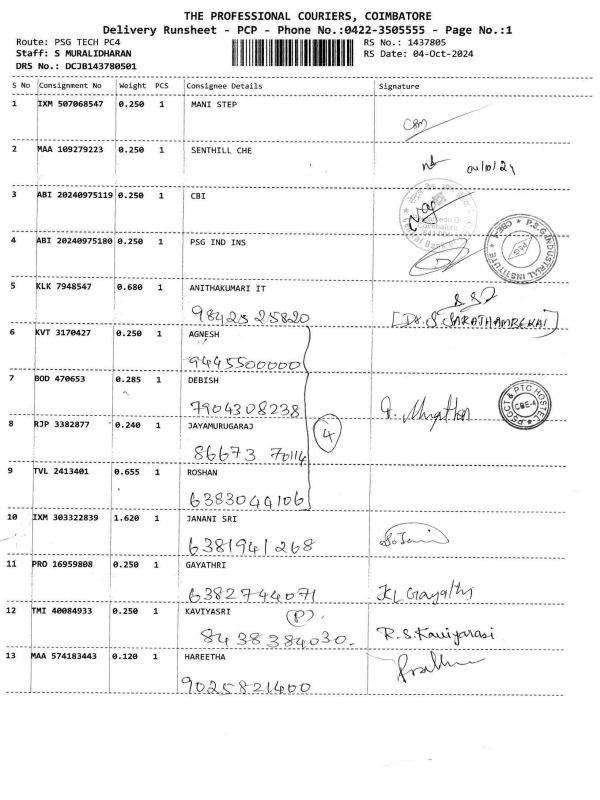 THE PROFESSIONAL COURIERS, COIMBATORE
Delivery Runsheet - PCP - Phone No.:0422-3505555 - Page No.:1
Route: PSG TECH PC4 RS No.: 1437805
Staff: S MURALIDHARAN RS Date: 04-Oct-2024
DRS No.: DCJB143780501
S No Consignment No Weight PCS Consignee Details Signature
1 IXM 507068547 0.250 1 MANI STEP
2 MAA 109279223 0.250 1 SENTHILL CHE
04/10/24
3 ABI 20240975119 0.250 1 CBI
4 ABI 20240975180 0.250 1 PSG IND INS
P.S.G. INDUSTRIAL INSTITUTE
PSG
CBE-4
5 KLK 7948547 0.680 1 ANITHAKUMARI IT
98425 25820
6 KVT 3170427 0.250 1 AGNESH
9445500000
7 BOD 470653 0.285 1 DEBISH
7904308238
PSGCT & PTC HOSTEL
CBE-4
8 RJP 3382877 0.240 1 JAYAMURUGARAJ
4
86673 70114
9 TVL 2413401 0.655 1 ROSHAN
6383044106
10 IXM 303322839 1.620 1 JANANI SRI
6381941268
11 PRO 16959808 0.250 1 GAYATHRI
6382744071
12 TMI 40084933 0.250 1 KAVIYASRI
P
8438384030. R.S.Kaviyarasi
13 MAA 574183443 0.120 1 HAREETHA
9025821400